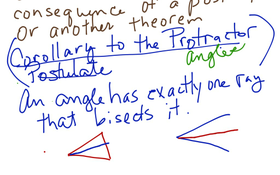 consequence of a pos
Or another theorem
(Corollary to the Protractor
Postulate angles)
An angle has exactly one ray
that bisects it.